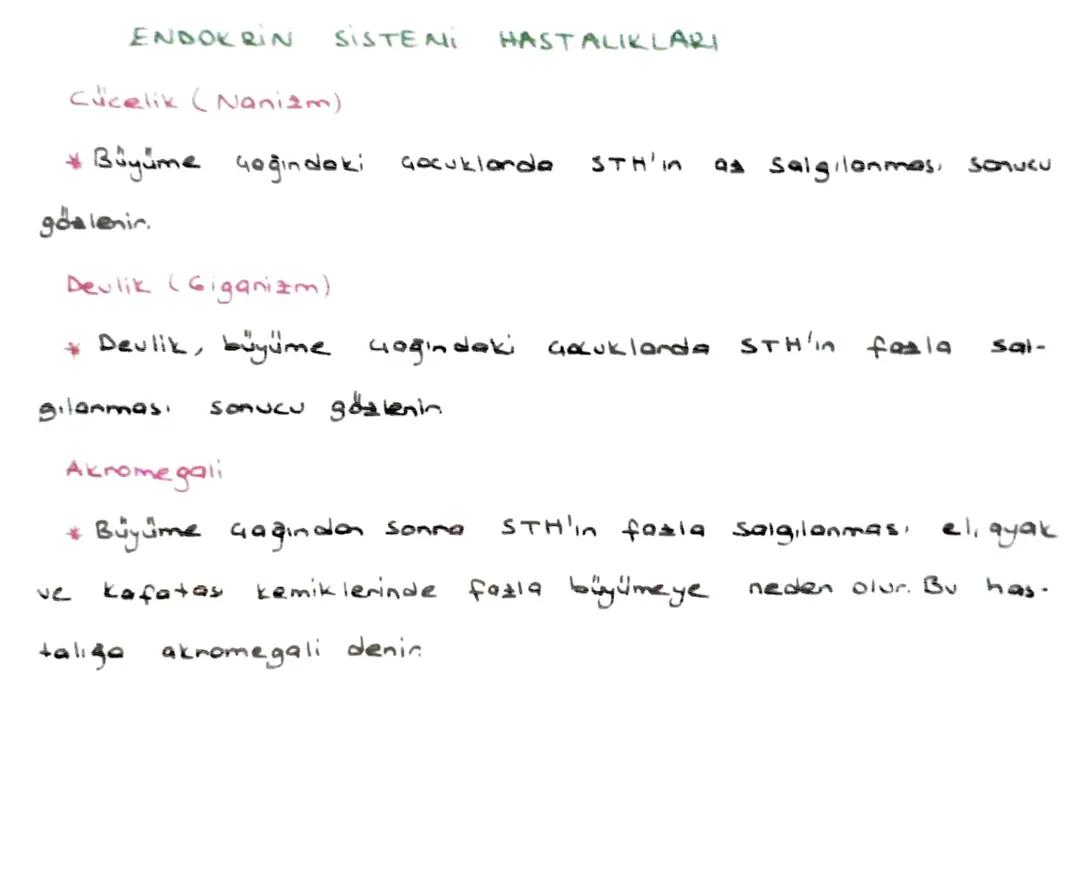 ENDOKRİN SİSTEMİ HASTALIKLARI
Cücelik (Nanizm)
* Büyüme çağındaki çocuklarda STH'ın az salgılanması sonucu
gözlenir.
Devlik (Giganizm)
* Devlik, büyüme çağındaki çocuklarda STH'ın fazla sal-
gılanması sonucu gözlenir
Akromegali
* Büyüme çağından sonra STH'ın fazla salgılanması el, ayak
ve kafatası kemiklerinde fazla büyümeye neden olur. Bu has-
talığa akromegali denir.